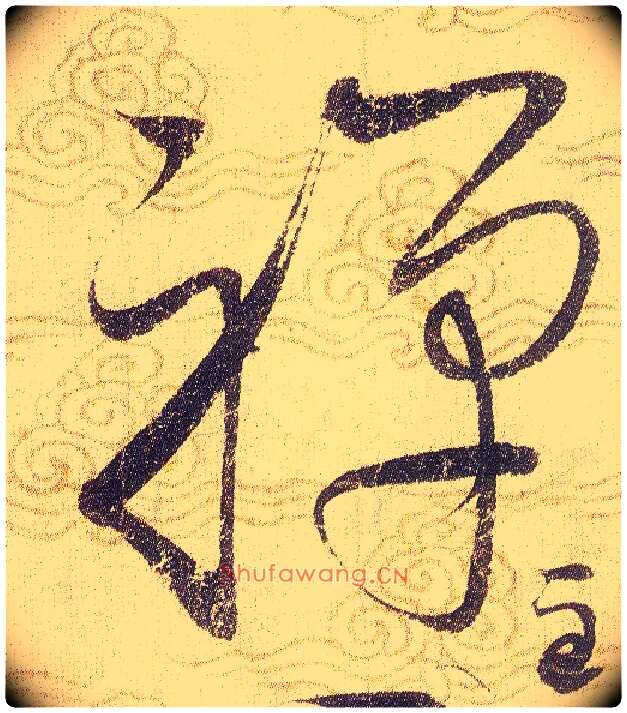 禪
Shufawang.CN